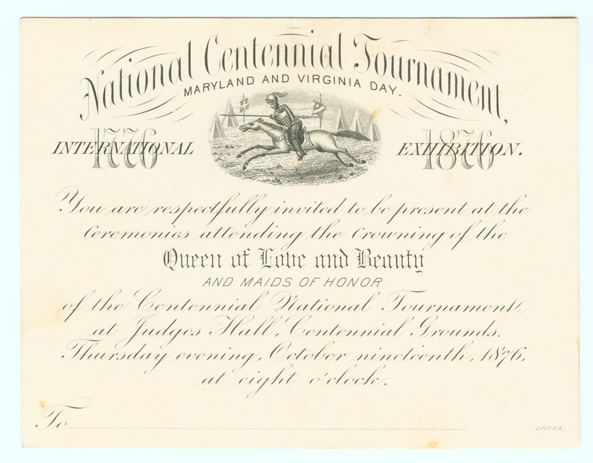 National Centennial Tournament,
MARYLAND AND VIRGINIA DAY.
1776 1876
INTERNATIONAL EXHIBITION.
You are respectfully invited to be present at the
Ceremonies attending the Crowning of the
Queen of Love and Beauty
AND MAIDS OF HONOR
of the Centennial National Tournament,
at Judges Hall, Centennial Grounds.
Thursday evening, October nineteenth, 1876,
at eight o'clock.
To